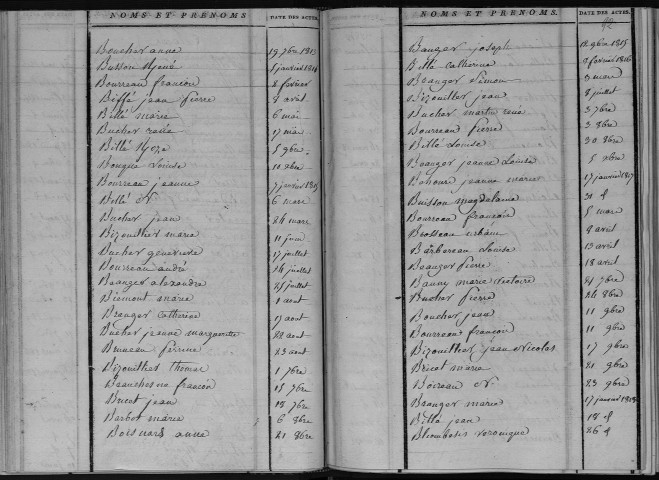 NOMS ET PRÉNOMS DATE DES ACTES.
Boucher anne 19 7bre 1813
Busson 5 janvier 1814
Bourreau francois 2 fevrier
Biffé jean Pierre 8 avril
Billé marie 6 mai
Bucher 17 mai
Billé 5 9bre
Bouque Louise 10 xbre
Bourreau jeanne 7 janvier 1815
Billé N 6 mars
Bucher jean 24 mars
Bizouillier marie 11 juin
Bucher genevieve 17 juillet
Bourreau andré 24 juillet
Beanger alexandre 25 juillet
Biemont marie 1 aout
Beanger Catherine 17 aout
Bucher jeanne marguerite 22 aout
Bruneau Perrine 23 aout
Bizouillier thomas 1 7bre
francois 15 7bre
Bricot jean 18 7bre
Barbot marie 6 8bre
Boisnard anne 21 8bre
NOMS ET PRÉNOMS. DATE DES ACTES.
92
Bauger joseph 12 9bre 1815
Billé Catherine 2 fevrier 1816
Beanger Simon 9 mars
Bizouillier jean 8 juillet
Bucher martin rené 3 7bre
Bourreau Pierre 3 8bre
Billé Louise 30 8bre
Beanger jeanne Louise 5 xbre
jeanne marie 17 janvier 1817
Buisson magdelaine 30 d
Bourreau francois 5 mars
Brosseau urbain 9 avril
Barbereau Louise 13 avril
Beanger Pierre 18 avril
Baune marie Victoire 21 7bre
Bucher Pierre 24 8bre
Boucher jean 11 9bre
Bourreau francois 11 9bre
Bizouillier jean Nicolas 17 9bre
Bricot marie 21 9bre
Boireau N 23 9bre
Beanger marie 17 janvier 1818
Billé jean 18 d
veronique 26 d